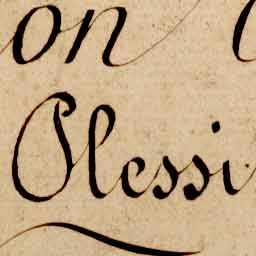 on
Plessi